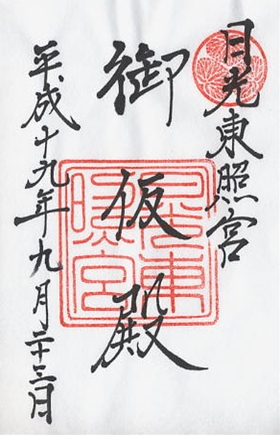 日光東照宮
御仮殿
平成十九年九月二十三日
日光東照宮